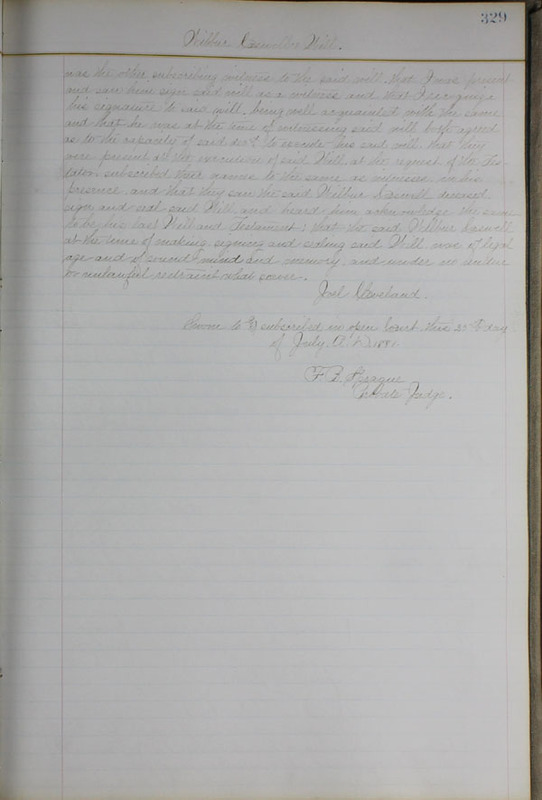 329
Wilbur Caswell's Will.
was the other subscribing witness to the said will, that I was present
and saw him sign said will as a witness and that I recognize
his signature to said will, being well acquainted with the same
and that he was at the time of witnessing said will both agreed
as to the capacity of said to execute his said will that they
were present at the execution of said Will, at the request of the Tes-
tator, subscribed their names to the same as witnesses in his
presence, and that they saw the said Wilbur Caswell deceased
sign and seal said Will and heard him acknowledge the same
to be his Last Will and Testament; that the said Wilbur Caswell
at the time of making signing and sealing said Will was of legal
age and of sound mind and memory, and under no undue
or unlawful restraint what soever.
Joel Cleveland.
Sworn to & subscribed in open Court this day
of July A.D. 1881.
F. B. Sprague
Probate Judge.